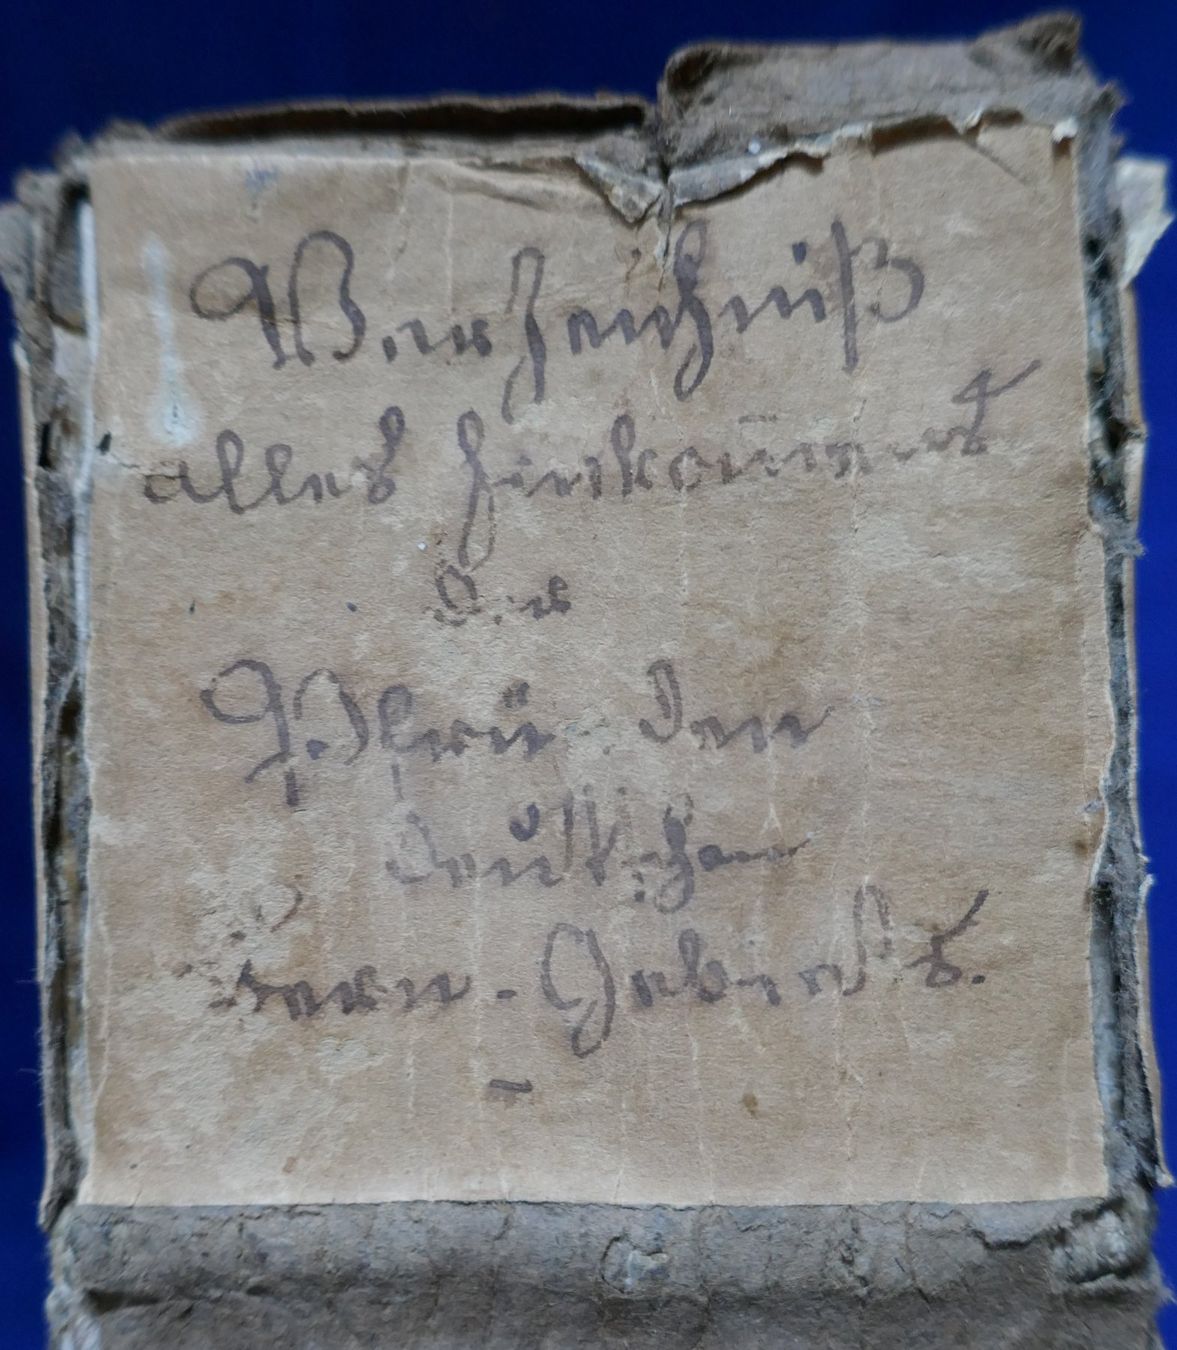 Verzeichniß
alles Einkommens
der
Pfrün den
Deutschen
bern-Gebieths.